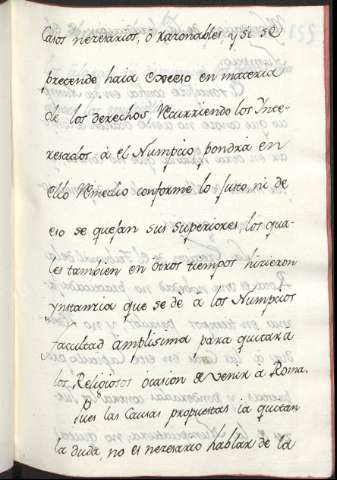 Casos nezesarios, ò xazonables y si se
pretende haia exceso en materia
de los derechos, Recurriendo los Inte-
resados à el Numpcio pondrà en
ello Remedio conforme lo justo, ni de
eso se quejan sus superiores, los qua-
les tambien en otros tiempos hizieron
ynstanzia que se dè a los Numpcios
facultad amplisima para quitar a
los Religiosos ocasion de venir a Roma.
Pues las Causas propuestas ia quitan
la duda, no es nezesario hablar de la